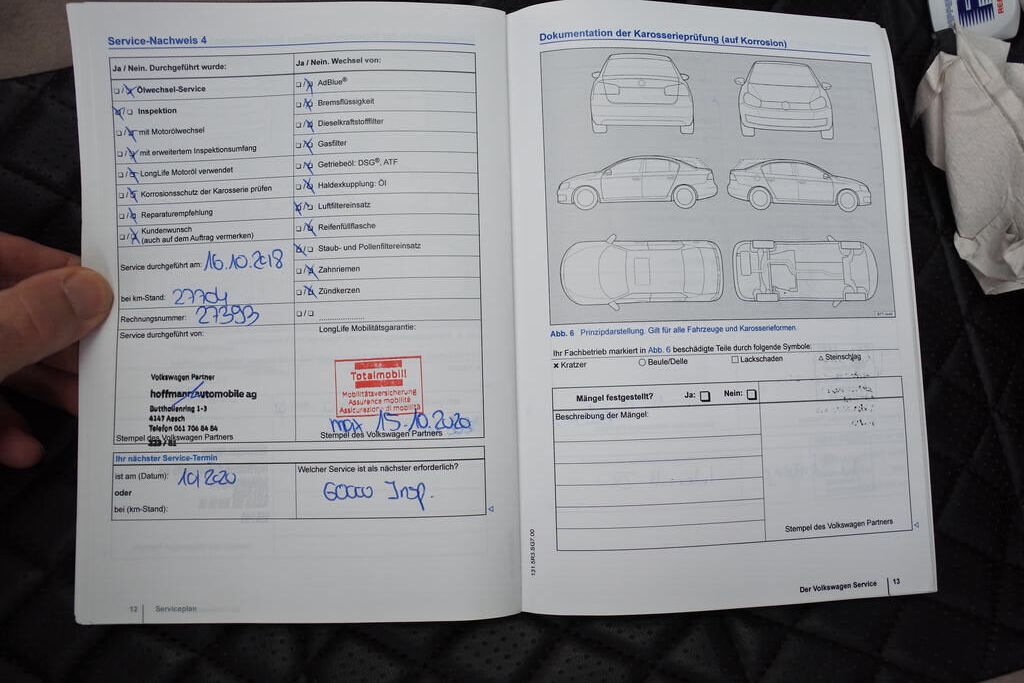 Service-Nachweis 4
Ja / Nein. Durchgeführt wurde:
Ölwechsel-Service
Inspektion
mit Motorölwechsel
mit erweitertem Inspektionsumfang
LongLife Motoröl verwendet
Korrosionsschutz der Karosserie prüfen
Reparaturempfehlung
Kundenwunsch
(auch auf dem Auftrag vermerken)
Service durchgeführt am: 16.10.2018
bei km-Stand: 27704
Rechnungsnummer: 27393
Service durchgeführt von:
Volkswagen Partner
hoffmann automobile ag
Buttholenring 1-3
4147 Aesch
Telefon 061 706 84 84
Stempel des Volkswagen Partners
Ja / Nein. Wechsel von:
AdBlue®
Bremsflüssigkeit
Dieselkraftstofffilter
Gasfilter
Getriebeöl: DSG®, ATF
Haldexkupplung: Öl
Luftfiltereinsatz
Reifenfüllflasche
Staub- und Pollenfiltereinsatz
Zahnriemen
Zündkerzen
LongLife Mobilitätsgarantie:
Totalmobil!
Mobilitätsversicherung
Assurance mobilité
Assicurazione di mobilità
max 15.10.2020
Stempel des Volkswagen Partners
Ihr nächster Service-Termin
ist am (Datum): 10/2020
oder
bei (km-Stand):
Welcher Service ist als nächster erforderlich?
60000 Insp.
12 Serviceplan
Dokumentation der Karosserieprüfung (auf Korrosion)
Abb. 6 Prinzipdarstellung. Gilt für alle Fahrzeuge und Karosserieformen.
Ihr Fachbetrieb markiert in Abb. 6 beschädigte Teile durch folgende Symbole:
× Kratzer ○ Beule/Delle □ Lackschaden △ Steinschlag
Mängel festgestellt? Ja: Nein:
Beschreibung der Mängel:
Stempel des Volkswagen Partners
131.5R3.SG7.00
Der Volkswagen Service 13